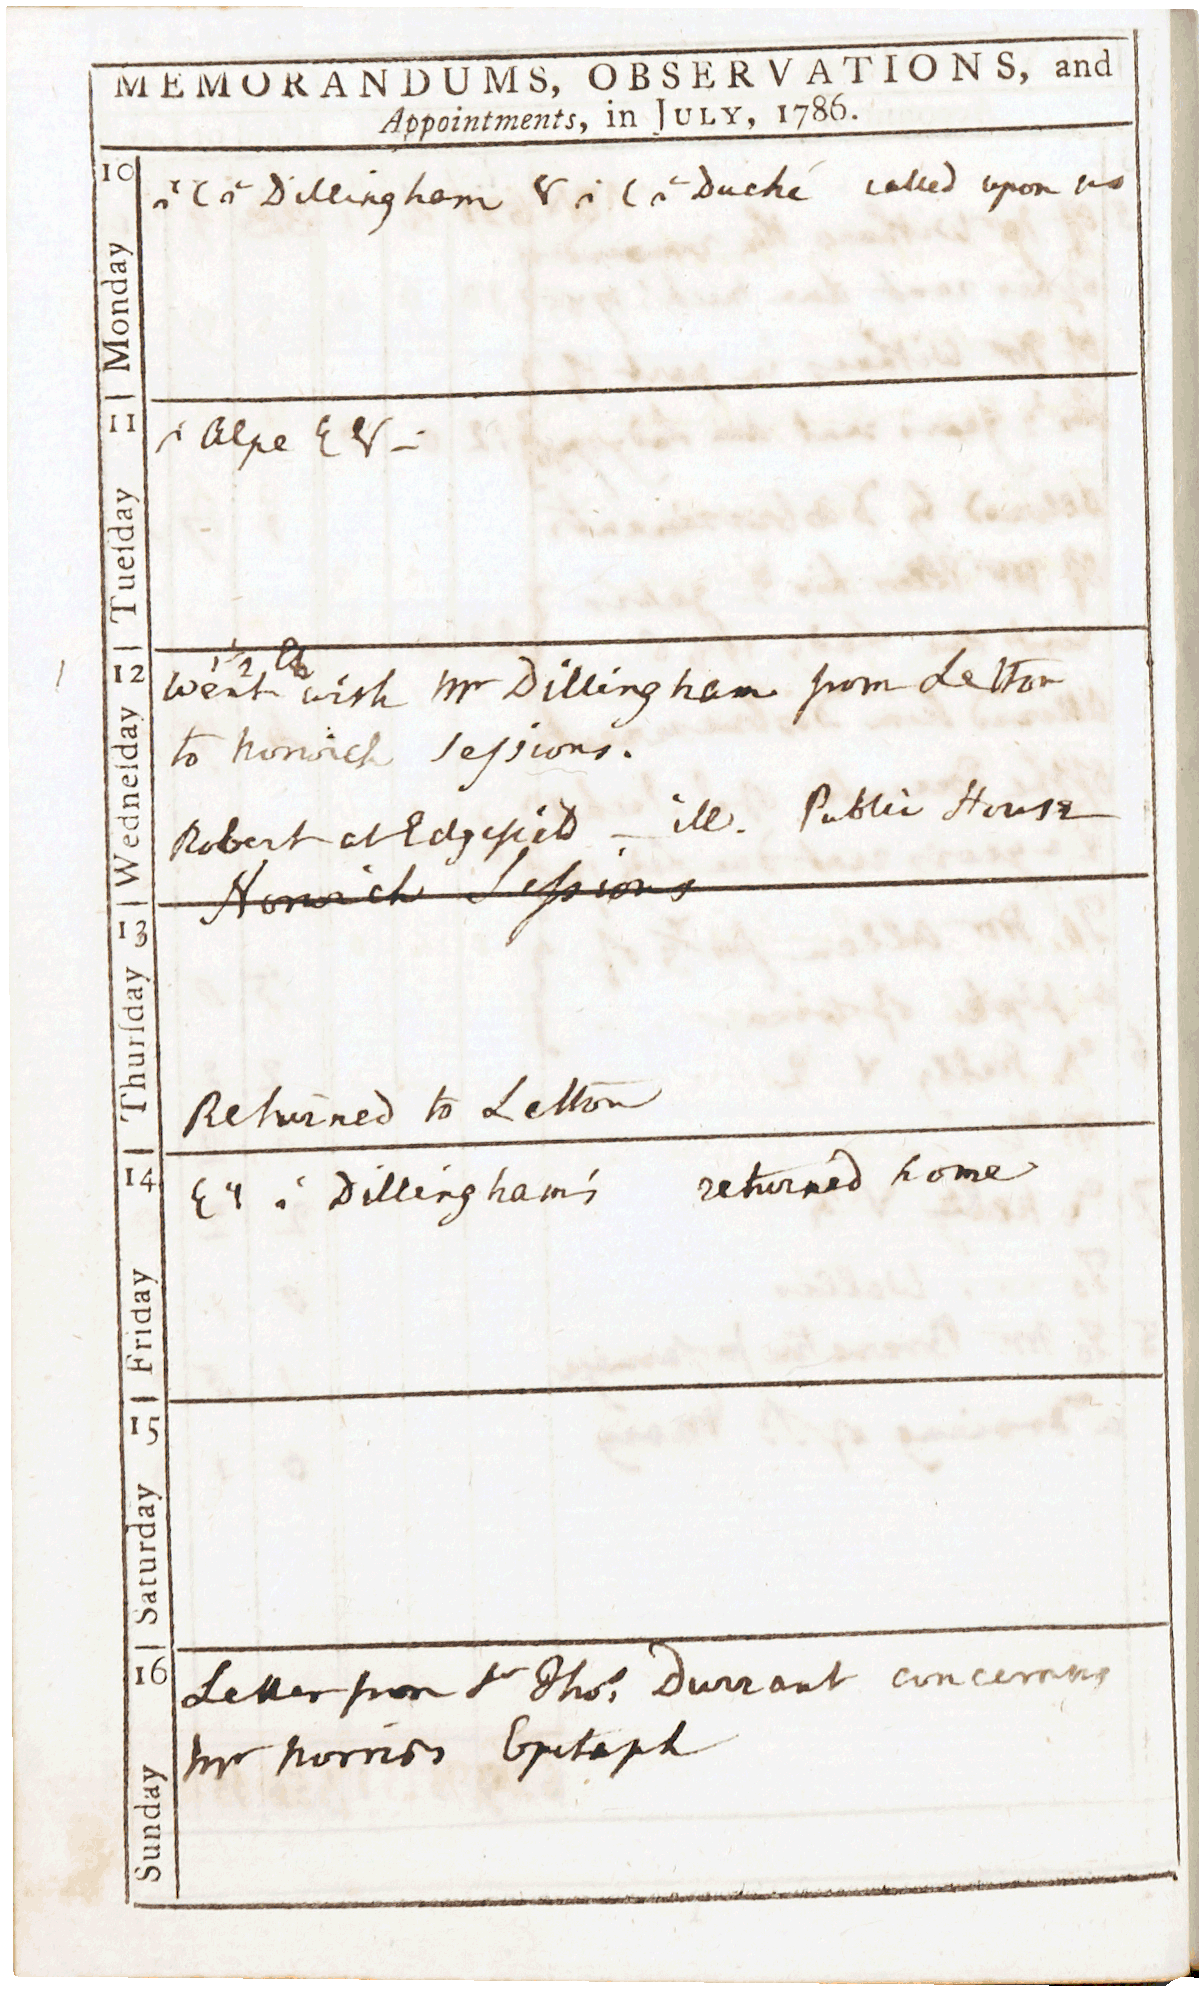 MEMORANDUMS, OBSERVATIONS, and
Appointments, in JULY, 1786.
10 Monday
Dillingham & Duché called upon us
11 Tueſday
Alpe
12 Wedneſday
1/2
Went with Mr Dillingham from Letton
to Norwich Seſsions.
Robert at Edgefield _ ill. Public House
Norwich Seſsions
13 Thurſday
Returned to Letton
14 Friday
Dillingham's returned home
15 Saturday
16 Sunday
Letter from Sr Thos. Durrant concerning
Mr Norris's Epitaph